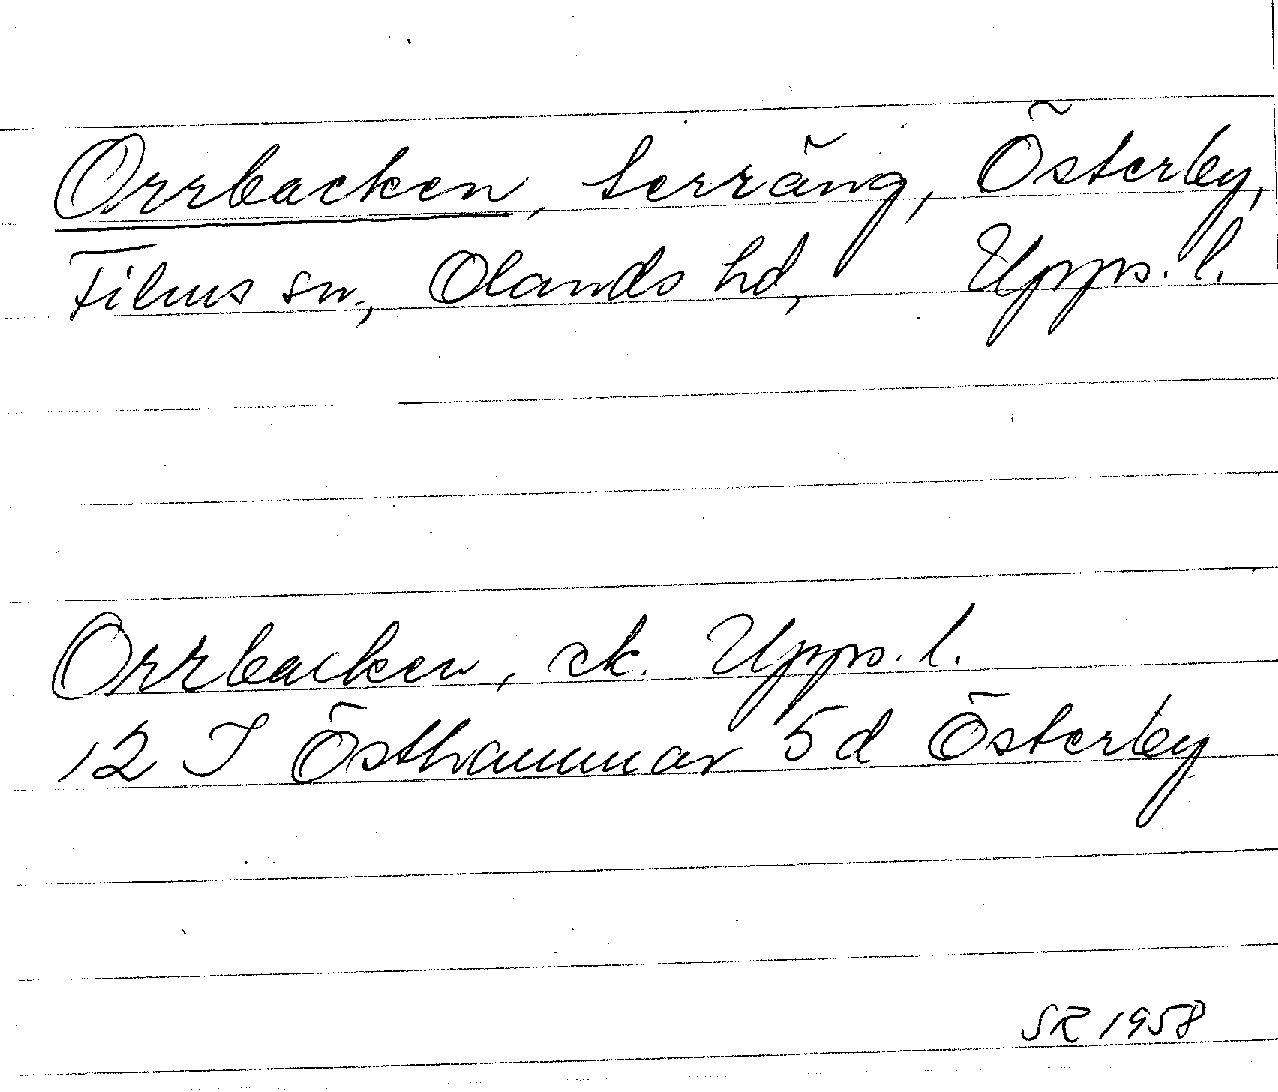 Orrbacken, terräng, Österby,
Films sn, Olands hd, Upps. l.
Orrbacken, ek. Upps. l.
12 I Östhammar 5d Österby
SR 1958